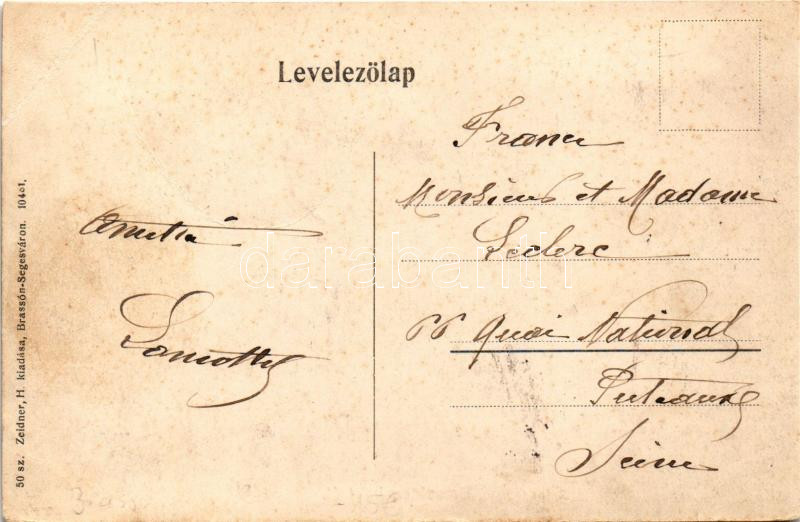 Levelezölap
France
Monsieur et Madame
Leclerc
66 Quai National
Puteaux
Seine
Amitié
Lamotte
50 sz. Zeidner, H. kiadása, Brassón-Segesváron. 10401.
darabanth